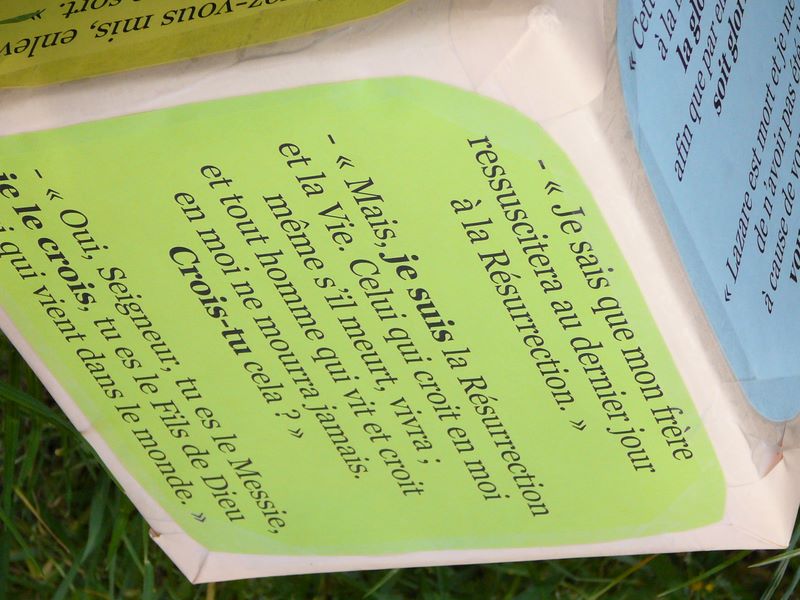 - « Je sais que mon frère
ressuscitera au dernier jour
à la Résurrection. »
- « Mais, je suis la Résurrection
et la Vie. Celui qui croit en moi
même s'il meurt, vivra ;
et tout homme qui vit et croit
en moi ne mourra jamais.
Crois-tu cela ? »
- « Oui, Seigneur, tu es le Messie,
je le crois, tu es le Fils de Dieu
qui vient dans le monde. »
à la
la
afin que par
soit
« Lazare est mort et je me
de n'avoir pas été
à cause de
-vous mis, enlev
sort. »